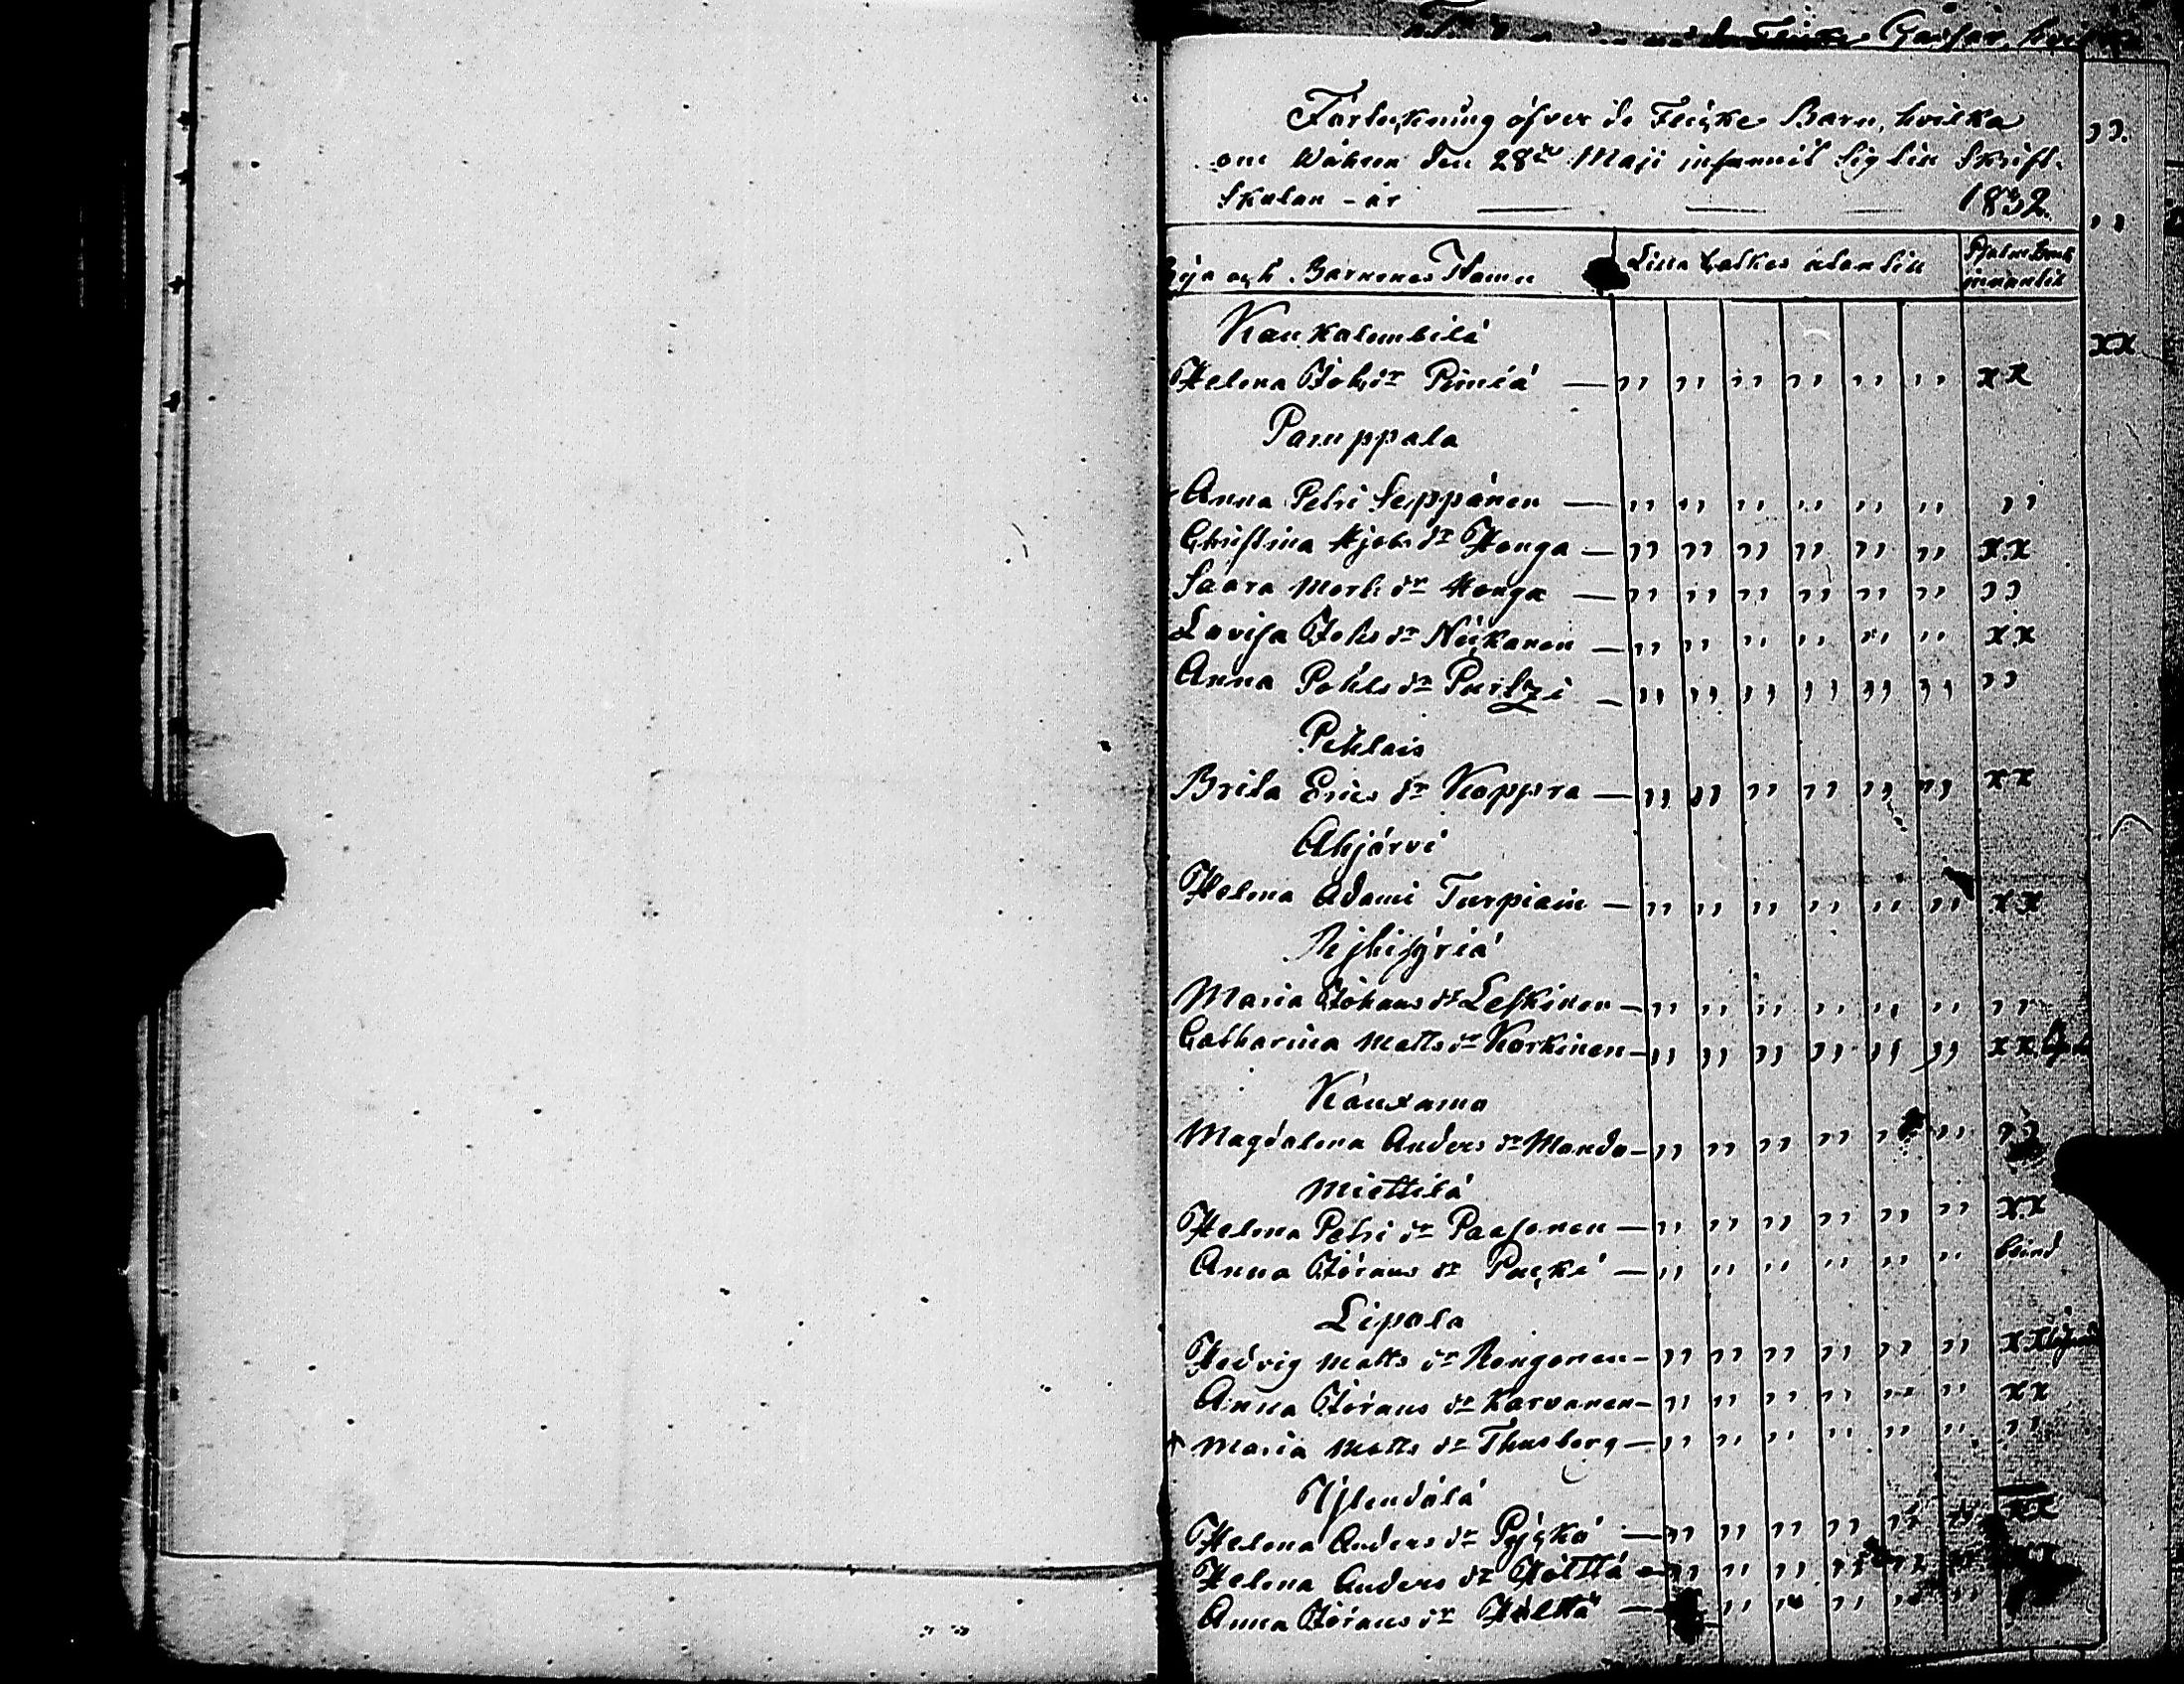 Förteckning öfver de Flicke Barn, hvilka
om Wåhren den 28de Maji infunnit sig till Skrift-
Skulan - år 1832.
Bya och Barnenes Namn
Lilla Catkes utan till
Psalm Bok
innantill
Kaukolembilä
Helena Johs dr Pimiä — ,, ,, ,, ,, ,, ,, xx
Pamppala
Anna Petri Seppänen — ,, ,, ,, ,, ,, ,, ,,
Christina dr Honga — ,, ,, ,, ,, ,, ,, xx
Saara Mårt: dr Honga — ,, ,, ,, ,, ,, ,, ,,
Lovisa Johs dr Nückanen — ,, ,, ,, ,, ,, ,, xx
Anna Påhls dr Purtzi — ,, ,, ,, ,, ,, ,, ,,
Pihlais
Brita Erics dr Koppra — ,, ,, ,, ,, ,, ,, xx
Ahjärvi
Helena Adami Turpiain — ,, ,, ,, ,, ,, ,, xx
Maria Johans dr Leskinen — ,, ,, ,, ,, ,, ,, ,,
Catharina Matts dr Korkinen — ,, ,, ,, ,, ,, ,, xx
Magdalena Anders dr Manda — ,, ,, ,, ,, ,, ,, ,,
Miettilä
Helena Petri dr Paasonen — ,, ,, ,, ,, ,, ,, xx
Anna Jörans dr Packi — ,, ,, ,, ,, ,, ,, blind
Lipola
Hedvig Matts dr Rongonen — ,, ,, ,, ,, ,, ,, xx
Anna Jörans dr Karvanen — ,, ,, ,, ,, ,, ,, xx
Maria Matts dr Thusberg — ,, ,, ,, ,, ,, ,, ,,
Yländälä
Helena Anders dr Pÿckä — ,, ,, ,, ,, ,, ,, xx
Helena Anders dr Hölttä — ,, ,, ,, ,, ,, ,,
Anna Jörans dr Hölttä — ,, ,, ,, ,, ,,